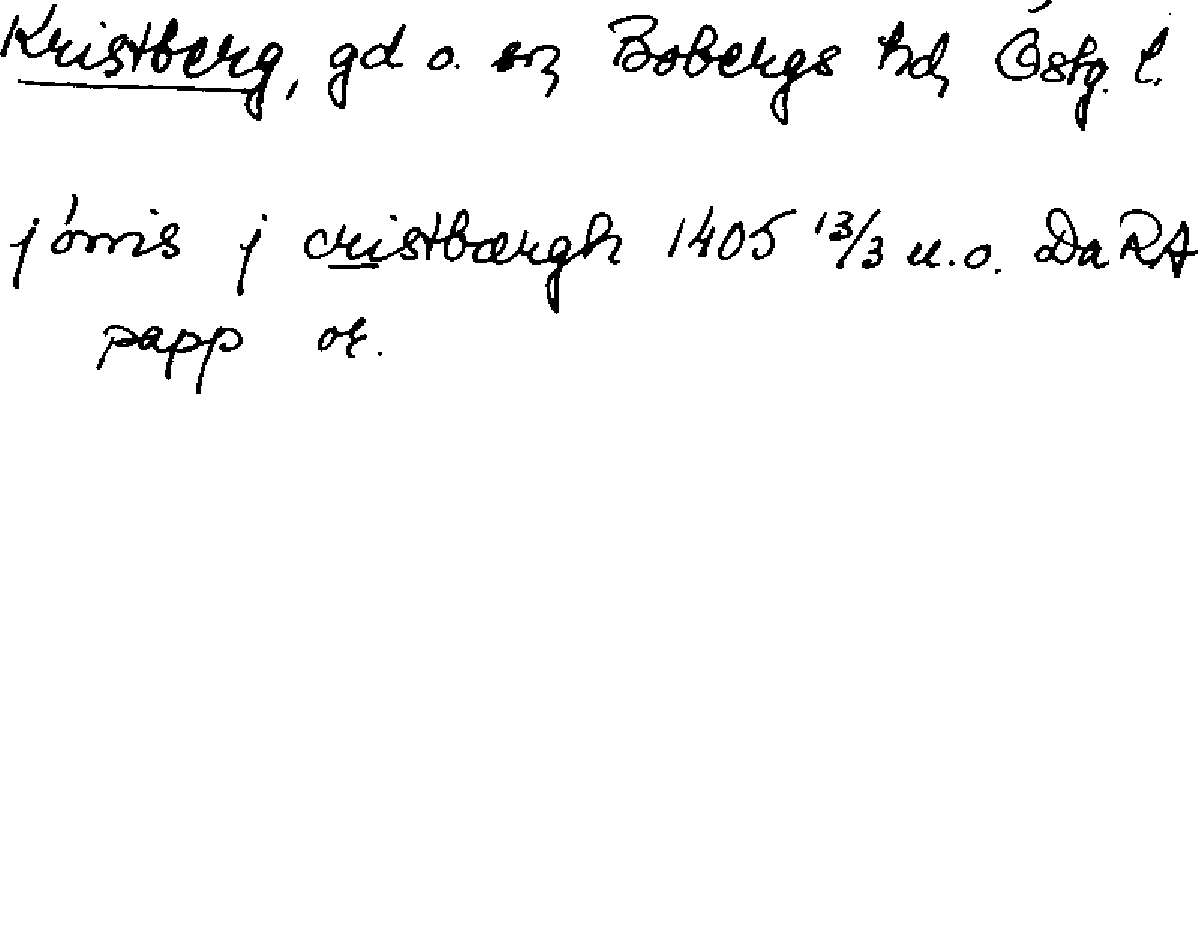 Kristberg, gd o. sn, Bobergs hd, Östg. l.
jönis j cristbærgh 1405 13/3 u.o. DaRA
papp or.